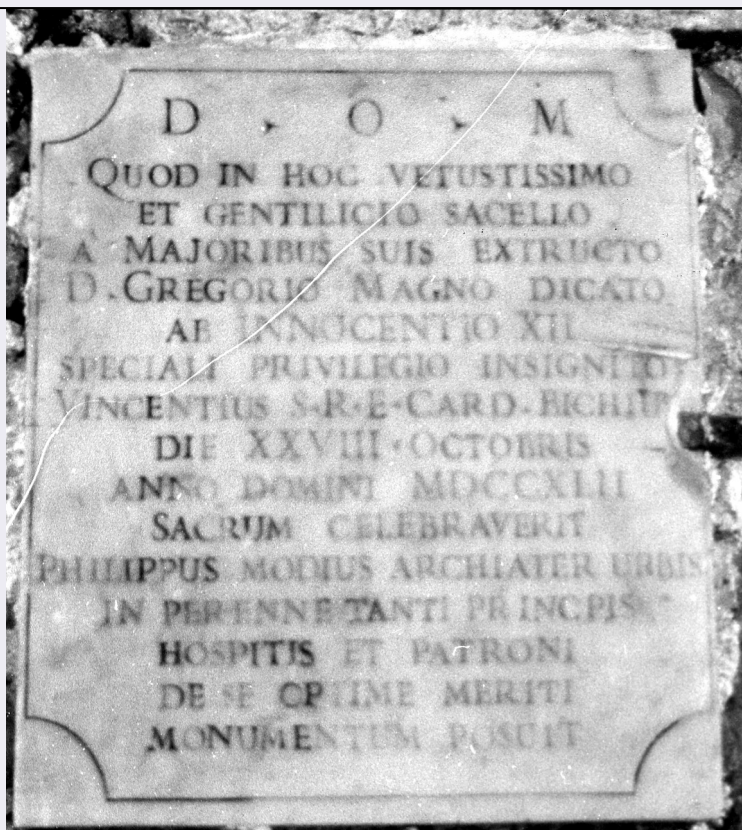 D · O · M
QUOD IN HOC VETUSTISSIMO
ET GENTILICIO SACELLO
A MAJORIBUS SUIS EXTRUCTO
D. GREGORIO MAGNO DICATO
AB INNOCENTIO XII
SPECIALI PRIVILEGIO INSIGNITO
VINCENTIUS S·R·E·CARD·BICHIUS
DIE XXVIII·OCTOBRIS
ANNO DOMINI MDCCXLII
SACRUM CELEBRAVERIT
PHILIPPUS MODIUS ARCHIATER URBIS
IN PERENNE TANTI PRINCIPIS
HOSPITIS ET PATRONI
DE SE OPTIME MERITI
MONUMENTUM POSUIT